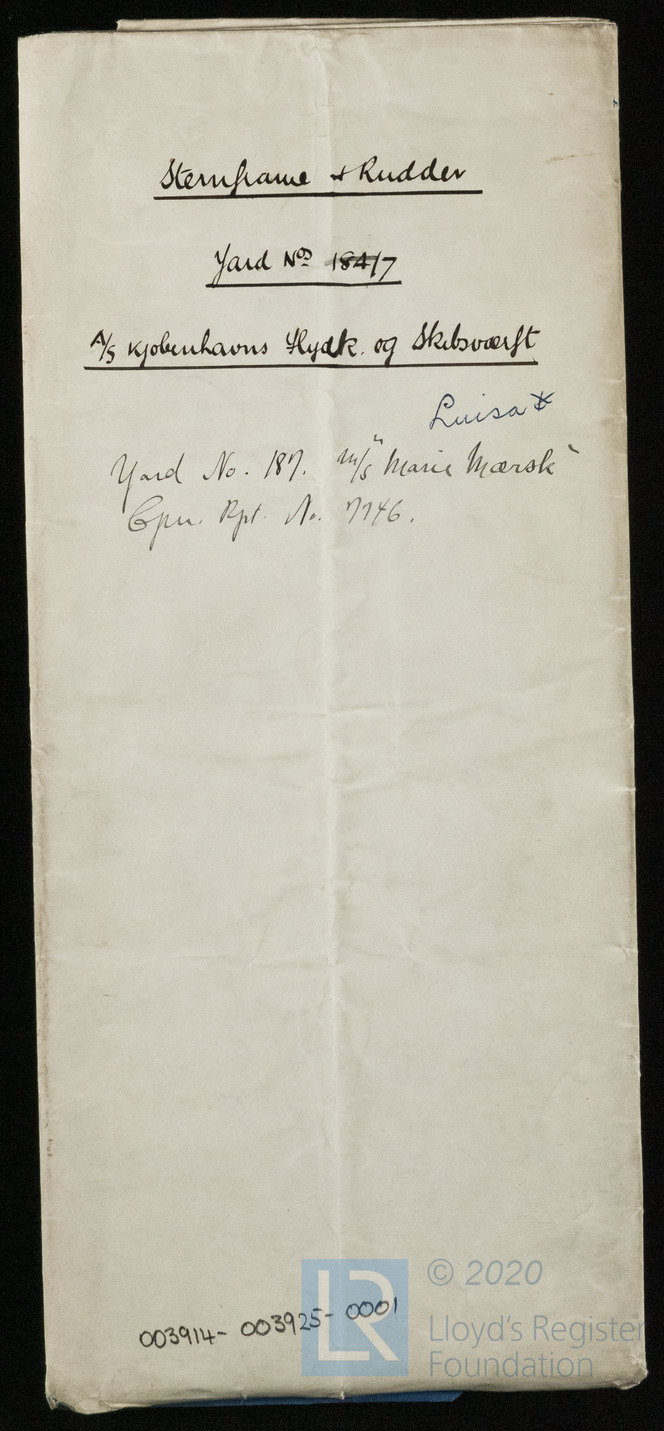 Sternframe & Rudder
Yard Nos 184/7
A/S Kjobenhavns Flydk. og Skibsværft
Luisa
Yard No. 187. m/s "Marie Mærsk"
Cpn. Rpt. No. 7746.
003914- 003925- 0001
LR
© 2020
Lloyd's Register
Foundation